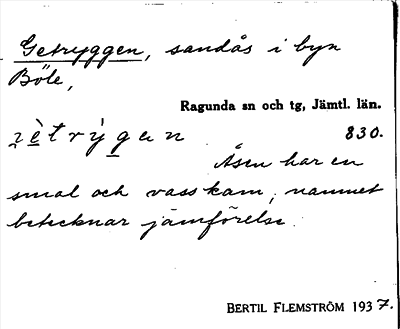 Getryggen, sandås i byn
Böle,
Ragunda sn och tg, Jämtl. län.
830.
Åsen har en
smal och vass kam, namnet
betecknar jämförelse.
BERTIL FLEMSTRÖM 1937.